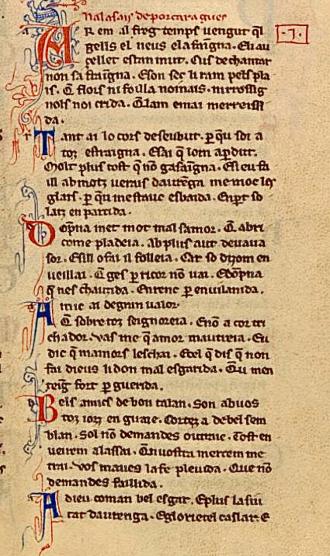 Nalasais de porcaragues
.7.
AR em al freg temps vengut ql
gells el neus ela faingna. Eu au
cellet estan mut. Cus de chantar
non sa fraingna. E son sec li ram pels pla
is. Q flors ni foilla noi nais. ni rossig
nols noi crida. Qlam e mai me
da.
Tant ai lo cors deseubut. p qu soi a
toz estraigna. E sai q lom apdut.
Molt plus tost q no gasaingna. E si eu fa
ill ab motz verais daurega me moc les
glais. p qu mestauc esbaida. Enpt so
latz en partida.
Dopna met mot mal samor. Q ab ri
come pladeia. Ab plus aut de vavua
sor. E sill o fai il folleia. Car so dizom en
veillai. Q ges p ricor no vai. E dopna
q nes chauzida. En renc p envilanida.
Amic ai de gran valor.
Q sobre toz seignoreia. E no a cor tri
chador. Vas me q amor mautreia. Eu
dic q mamors leschai. E cel q dis q non
fai dieus li don mal esgarida. Qu men
teig fort p guerida.
Bels amics de bon talan. Son ab vos
toz jorz en gatge. Cortez a de bel sem
blan. Sol no demandes outrage. Tost en
veirem a lassai. Qn vostra merce m me
trai. Vos maves la fe plevida. Que no
demandes faillida.
A dieu coman bel esgar. E plus la siu
tat daurenga. E glorietel caslar. E